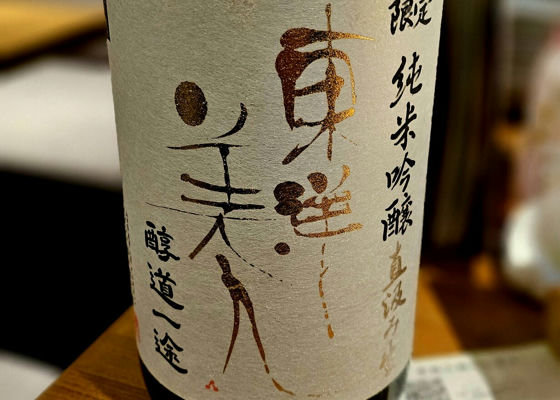 限定 純米吟醸 直汲み生
東洋
美人
醇道一途